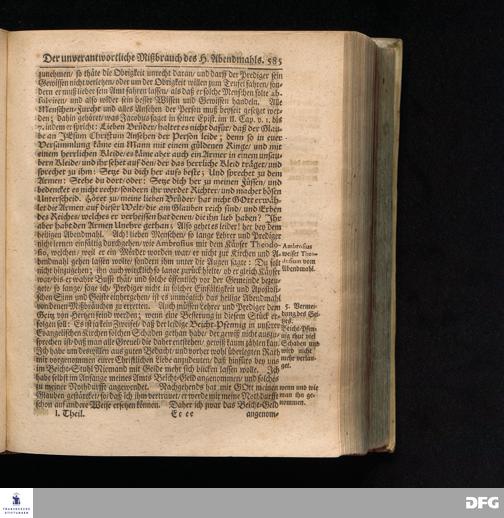 Der unverantwortliche Mißbrauch des H. Abendmahls. 585
zunehmen/ so thäte die Obrigkeit unrecht daran/ und darff der Prediger sein
Gewissen nicht verletzen/ oder um der Obrigkeit willen zum Teufel fahren/ son-
dern er muß lieber sein Amt fahren lassen/ als daß er solche Menschen solte ab-
solviren/ und also wider sein besser Wissen und Gewissen handeln. Alle
Menschen-Furcht und alles Ansehen der Person muß beyseit gesetzet wer-
den; dahin gehöret/ was Jacobus saget in seiner Epist. im II. Cap. v. 1. bis
7. indem er spricht: Lieben Brüder/ haltet es nicht dafür/ daß der Glau-
be an JEsum Christum Ansehen der Person leide; denn so in euer
Versammlung käme ein Mann mit einem güldenen Ringe/ und mit
einem herrlichen Kleide/ es käme aber auch ein Armer in einem unsau-
bern Kleide/ und ihr sehet auf den/ der das herrliche Kleid träget/ und
sprechet zu ihm: Setze du dich her aufs beste; Und sprechet zu dem
Armen: Stehe du dort/ oder: Setze dich her zu meinen Füssen/ und
bedencket es nicht recht/ sondern ihr werdet Richter/ und machet bösen
Unterscheid. Höret zu/ meine lieben Brüder/ hat nicht GOtt erwäh-
let die Armen auf dieser Welt/ die am Glauben reich sind/ und Erben
des Reiches/ welches er verheissen hat denen/ die ihn lieb haben? Ihr
aber habt den Armen Unehre gethan; Also gehet es leider! her bey dem
heiligen Abendmahl. Ach! lieben Menschen/ so lange Lehrer und Prediger
nicht lernen einfältig durchgehen/ wie Ambrosius mit dem Käyser Theodo-
sio, welchen/ weil er ein Mörder worden war/ er nicht zur Kirchen und A-
bendmahl gehen lassen wolte/ sondern ihm unter die Augen sagte: Du solt
nicht hinzugehen; ihn auch würcklich so lange zurück hielte/ ob er gleich Käyser
war/ bis er wahre Busse thät/ und solche öffentlich vor der Gemeinde bezeu-
gete/ so lange/ sage ich/ Prediger nicht in solcher Einfältigkeit und Apostoli-
schen Sinn und Geiste einhergehen/ ist es unmöglich das heilige Abendmahl
von denen Mißbräuchen zu erretten. Auch müssen Lehrer und Prediger dem
Geitz von Hertzen feind werden; wenn eine Besserung in diesem Stück er-
folgen soll: Es ist ja kein Zweifel/ daß der leidige Beicht-Pfennig in unserer
Evangelischen Kirchen solchen Schaden gethan habe/ der gewiß nicht auszu-
sprechen ist/ daß man alle Greuel/ die daher entstehen/ gewiß kaum zählen kan.
Ich habe um deswillen aus guten Bedacht/ und vorher wohl überlegten Rath
mir vorgenommen einer Christlichen Liebe anzudeuten/ daß hinfürs bey uns
im Beicht-Stuhl Niemand mit Gelde mehr sich blicken lassen wolle. Ich
habe selbst im Anfange meines Amts Beicht-Geld angenommen/ und solches
zu meiner Nothdurfft angewendet. Nachgehends hat mir GOtt meinen
Glauben gestärcket/ so/ daß ich ihm vertrauet/ er werde mir meine Nothdurfft
schon auf andere Weise ersetzen können. Daher ich zwar das Beicht-Geld
I. Theil. Eeee angenom-
Ambrosius
weiset Theo-
dosium vom
Abendmahl.
5. Vermei-
dung des Gei-
tzes.
Beicht-Pfen-
nig thut viel
Schaden und
wird nicht
mehr verlan-
get.
wenn und wie
man ihn ge-
nommen.
FRANCKESCHE
STIFTUNGEN
DFG